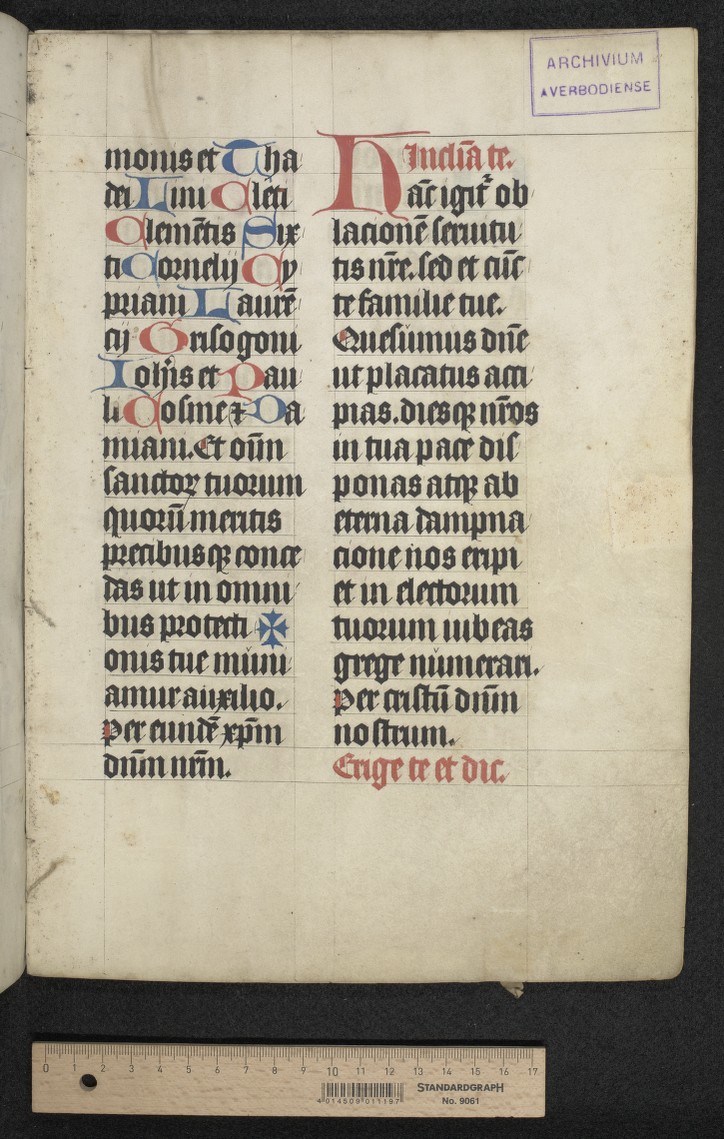 ARCHIVIUM
AVERBODIENSE
monis et Tha
dei Lini Cleti
Clemētis Six
ti Cornelij Cy
priani Laurē
cij Grisogoni
Ioh̄is et Pau
li Cosme ⁊ Da
miani. Et oīm
sanctoꝝ tuorum
quorū meritis
precibusqꝫ conce
das ut in omni
bus protecti
onis tue muni
amur auxilio.
Per eundē xp̄m
dn̄m nr̄m.
Inclīa te.
Hāc igit᷑ ob
lacionē seruitu
tis nr̄e. sed et cūc
te familie tue.
Quesumus dn̄e
ut placatus acci
pias. diesqꝫ nr̄os
in tua pace dis
ponas atqꝫ ab
eterna dampna
cione nos eripi
et in electorum
tuorum iubeas
grege numerari.
Per cristū dn̄m
nostrum.
Erige te et dic.
0 1 2 3 4 5 6 7 8 9 10 11 12 13 14 15 16 17
4 014509 011197
STANDARDGRAPH
No. 9061